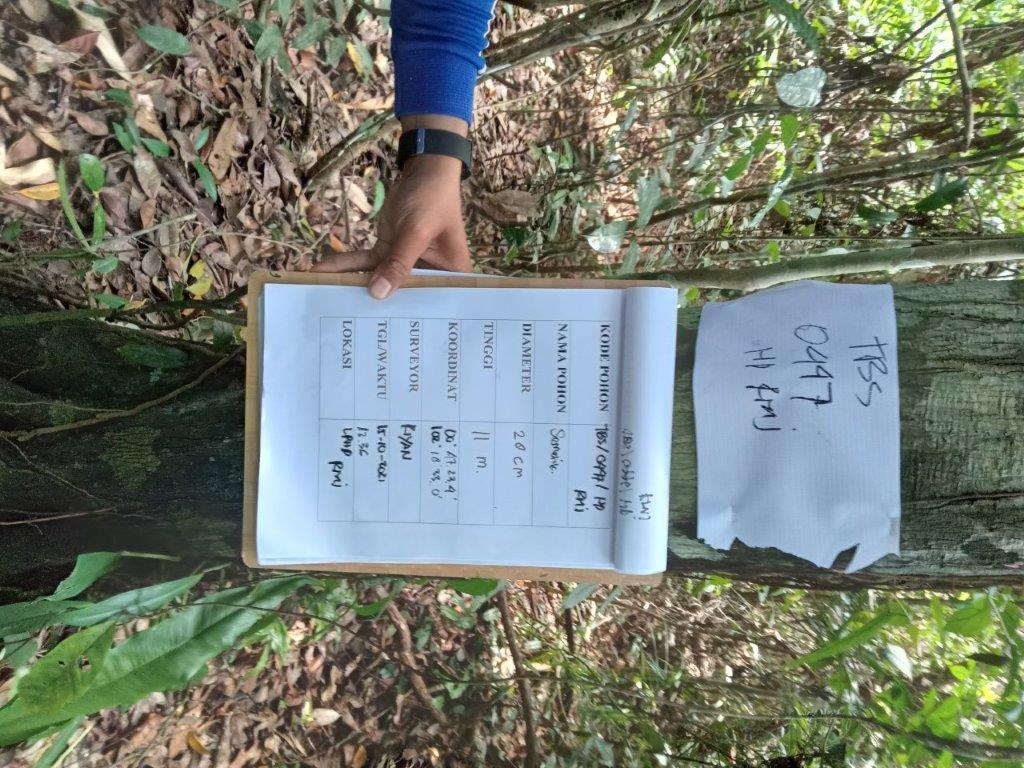 TBS
0447
HP RMJ
KODE POHON TBS/0447/HP
RMJ
NAMA POHON
DIAMETER 28 cm
TINGGI 11 m.
KOORDINAT 00° 47' 23,4"
102° 18' 33,0"
SURVEYOR RIYAN
TGL/WAKTU 15-10-2021
12.36
LOKASI LPHD
RMJ